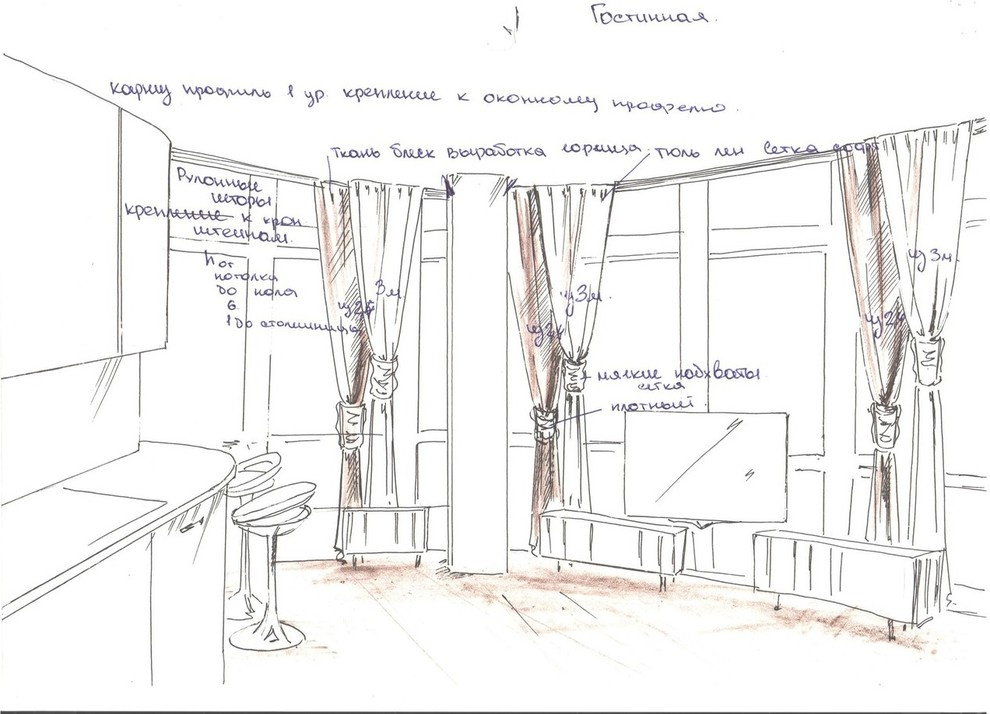 Гостинная.
карниз профиль 1 ур. крепление к оконному профелю.
ткань блеск выработка горчица. тюль лен сетка
Рулонные
шторы
крепление к крон
штейнам.
h от
потолка
до пола
6.
1 до столешницы
3м
из 3м.
из 3м.
мягкие подхваты
сетка
плотный